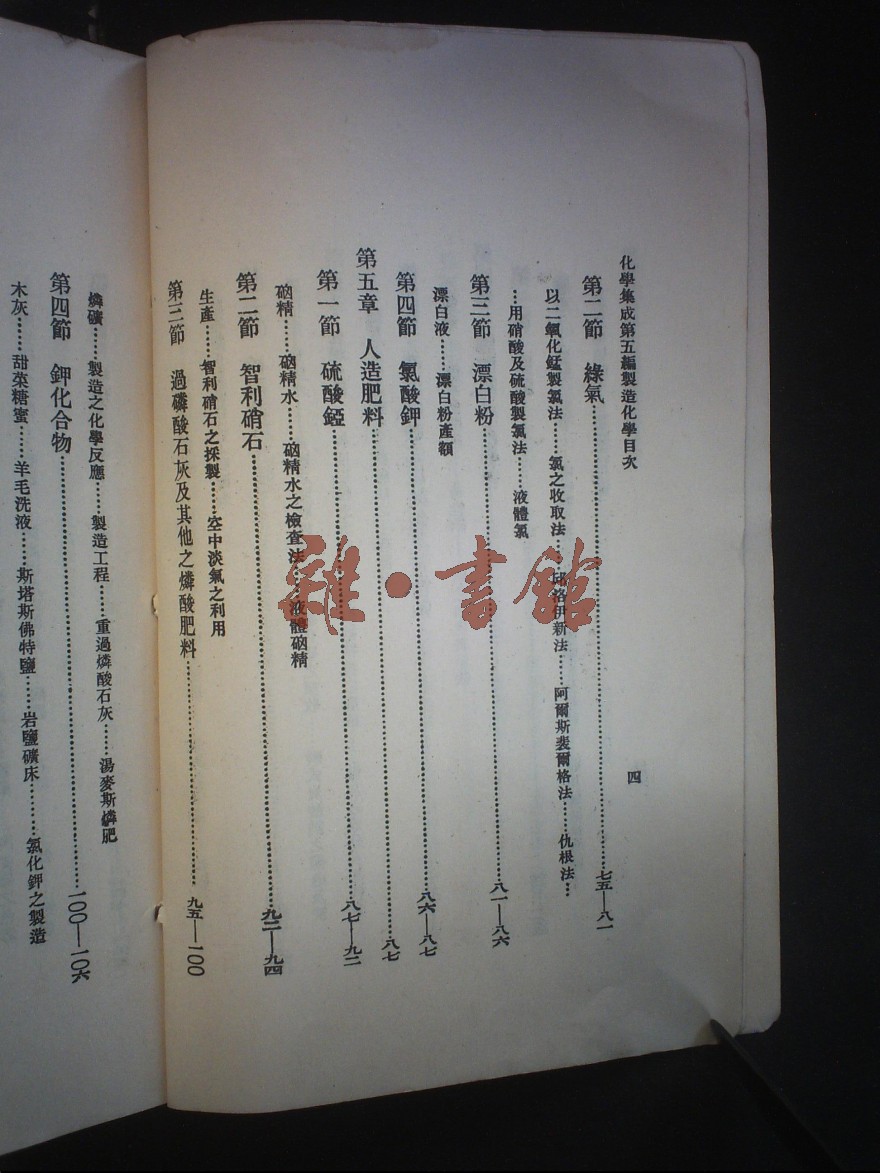 化學集成第五編製造化學目次
四
第二節 綠氣……七五—八一
以二氧化錳製氯法……氯之收取法……邱洛伊新法……阿爾斯裴爾格法……仇根法…
…用硝酸及硫酸製氯法……液體氯
第三節 漂白粉……八一—八六
漂白液……漂白粉產額
第四節 氯酸鉀……八六—八七
第五章 人造肥料……八七
第一節 硫酸錏……八七—九二
硇精……硇精水……硇精水之檢查法……液體硇精
第二節 智利硝石……九二—九四
生產……智利硝石之採製……空中淡氣之利用
第三節 過磷酸石灰及其他之燐酸肥料……九五—一〇〇
燐礦……製造之化學反應……製造工程……重過燐酸石灰……湯麥斯燐肥
第四節 鉀化合物……一〇〇—一〇六
木灰……甜菜糖蜜……羊毛洗液……斯塔斯佛特鹽……岩鹽礦床……氯化鉀之製造
雜·書館